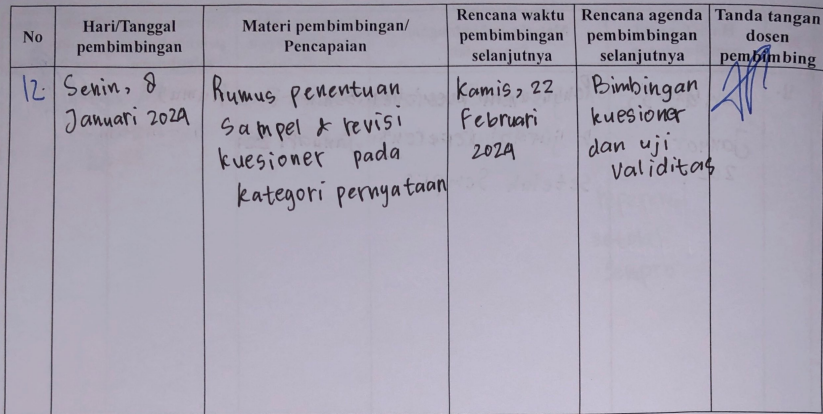 No
Hari/Tanggal
pembimbingan
Materi pembimbingan/
Pencapaian
Rencana waktu
pembimbingan
selanjutnya
Rencana agenda
pembimbingan
selanjutnya
Tanda tangan
dosen
pembimbing
12.
Senin, 8
Januari 2024
Rumus penentuan
Sampel & revisi
kuesioner pada
kategori pernyataan
Kamis, 22
Februari
2024
Bimbingan
kuesioner
dan uji
validitas